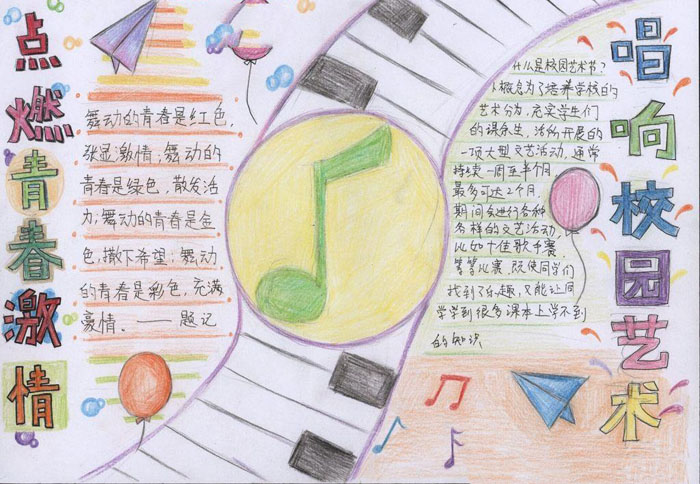 点燃青春激情
舞动的青春是红色,
张显激情;舞动的
青春是绿色,散发活
力;舞动的青春是金
色,撒下希望;舞动
的青春是彩色,充满
豪情、——题记
什么是校园艺术节?
概念为了培养学校的
艺术分为,充实学生们
的课余生,活所开展的
一项大型文艺活动,通常
持续一周至半个月
最多可达2个月.
期间会进行各种
各样的文艺活动,
比如十佳歌手赛,
等等比赛 既使同学们
找到了乐趣,又能让同
学学到很多课本上学不到
的知识
唱响校园艺术